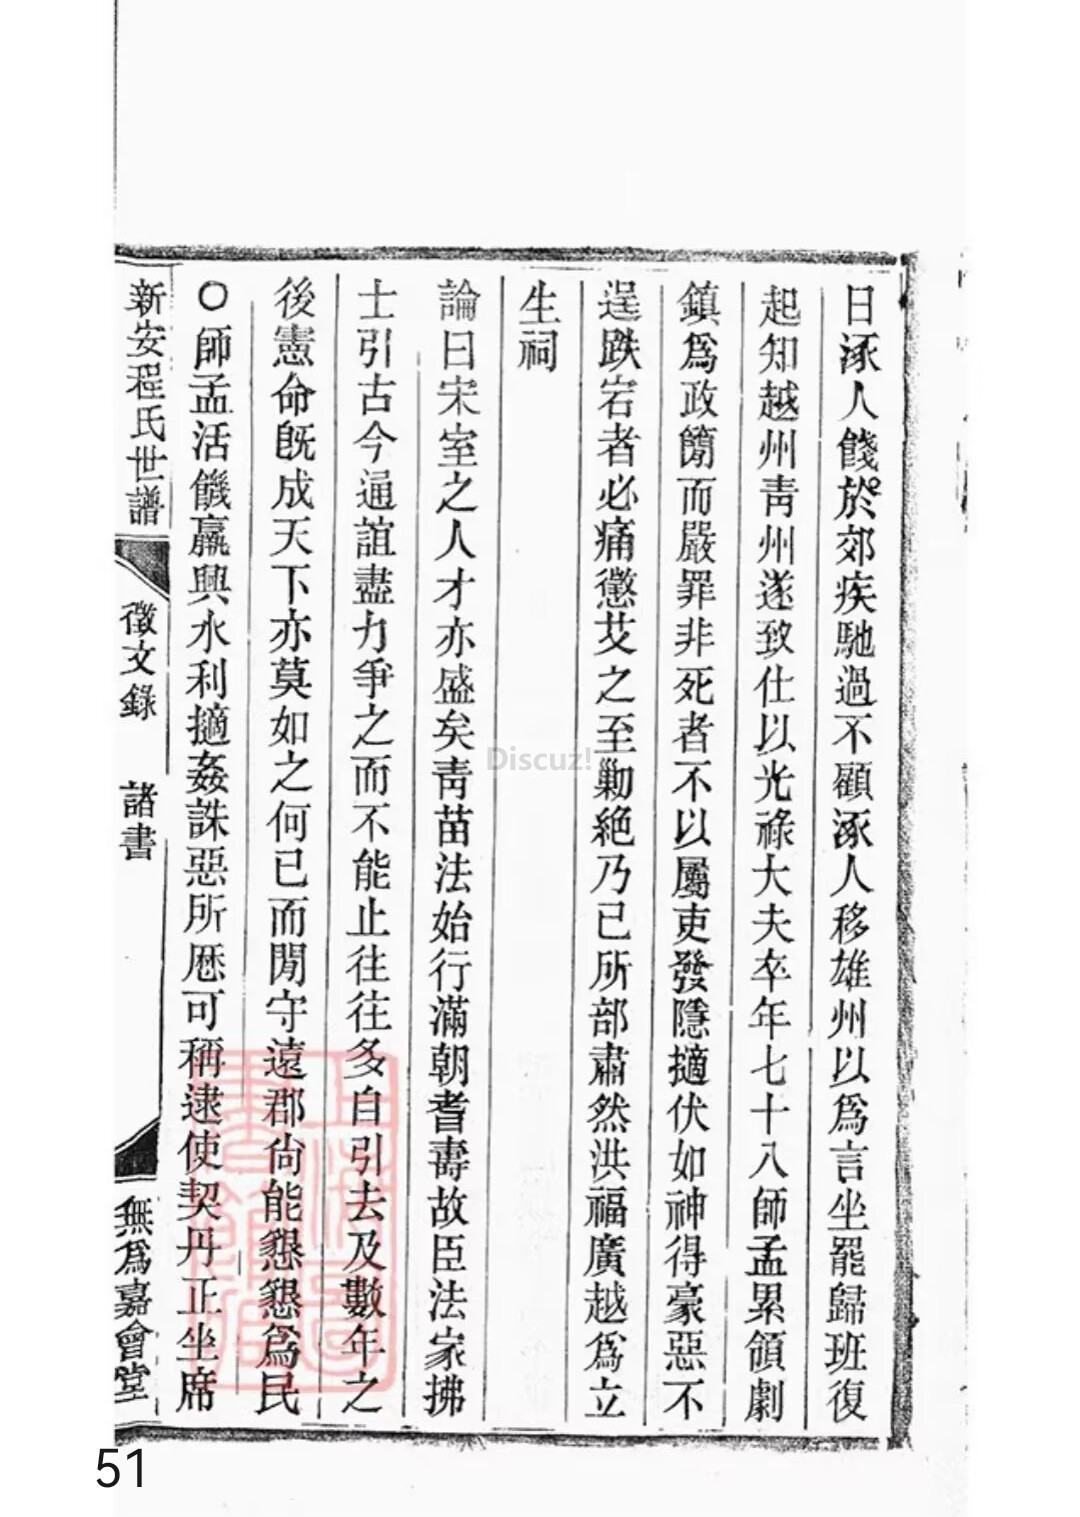 日涿人餞於郊疾馳過不顧涿人移雄州以爲言坐罷歸班復
起知越州靑州遂致仕以光祿大夫卒年七十八師孟累領劇
鎮爲政簡而嚴罪非死者不以屬吏發隱擿伏如神得豪惡不
逞跌宕者必痛懲艾之至勦絕乃已所部肅然洪福廣越爲立
生祠
論曰宋室之人才亦盛矣靑苗法始行滿朝耆壽故臣法家拂
士引古今通誼盡力爭之而不能止往往多自引去及數年之
後憲命旣成天下亦莫如之何已而閒守遠郡尙能懇懇爲民
○師孟活饑羸興水利擿姦誅惡所厯可稱逮使契丹正坐席
新安程氏世譜 徵文錄 諸書 無爲嘉會堂
Discuz!
51